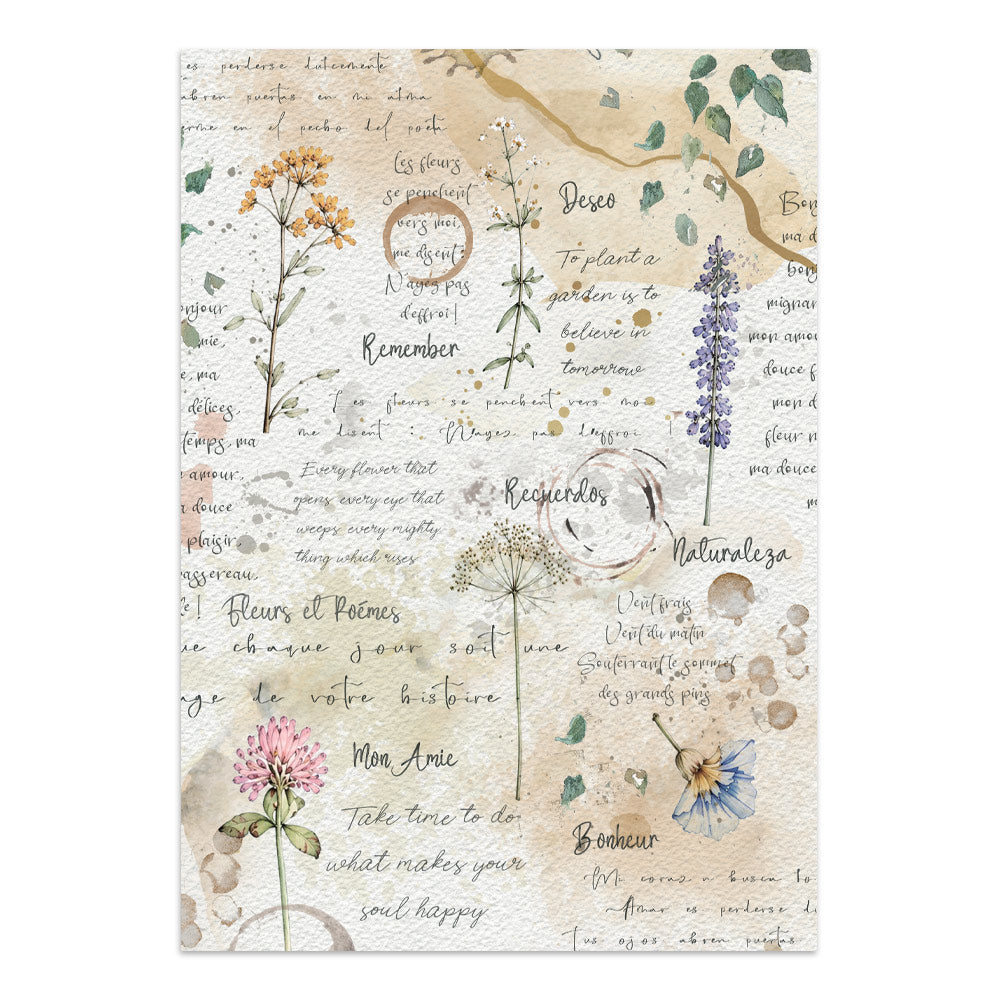 es perderse dulcemente
abren puertas en mi alma
erme en el pecho del poeta
Les fleurs
se penchent
vers moi,
me disent:
N'ayez pas
d'effroi!
Deseo
To plant a
garden is to
believe in
tomorrow
Bon
ma d
bonj
mignar
mon amou
douce f
mon d
fleur n
ma douce
m
Remember
Les fleurs se penchent vers moi
me disent : N'ayez pas d'effroi !
onjour
mie,
e, ma
délices,
temps, ma
amour,
a douce
plaisir,
assereau,
e!
Every flower that
opens, every eye that
weeps, every mighty
thing which rises
Recuerdos
Naturaleza
Vent frais
Vent du matin
Souterrant le sommet
des grands pins
Fleurs et Poémes
ue chaque jour soit une
age de votre histoire
Mon Amie
Take time to do
what makes your
soul happy
Bonheur
Mi coraz n busca lo
Amar es perderse d
Tus ojos abren puertas